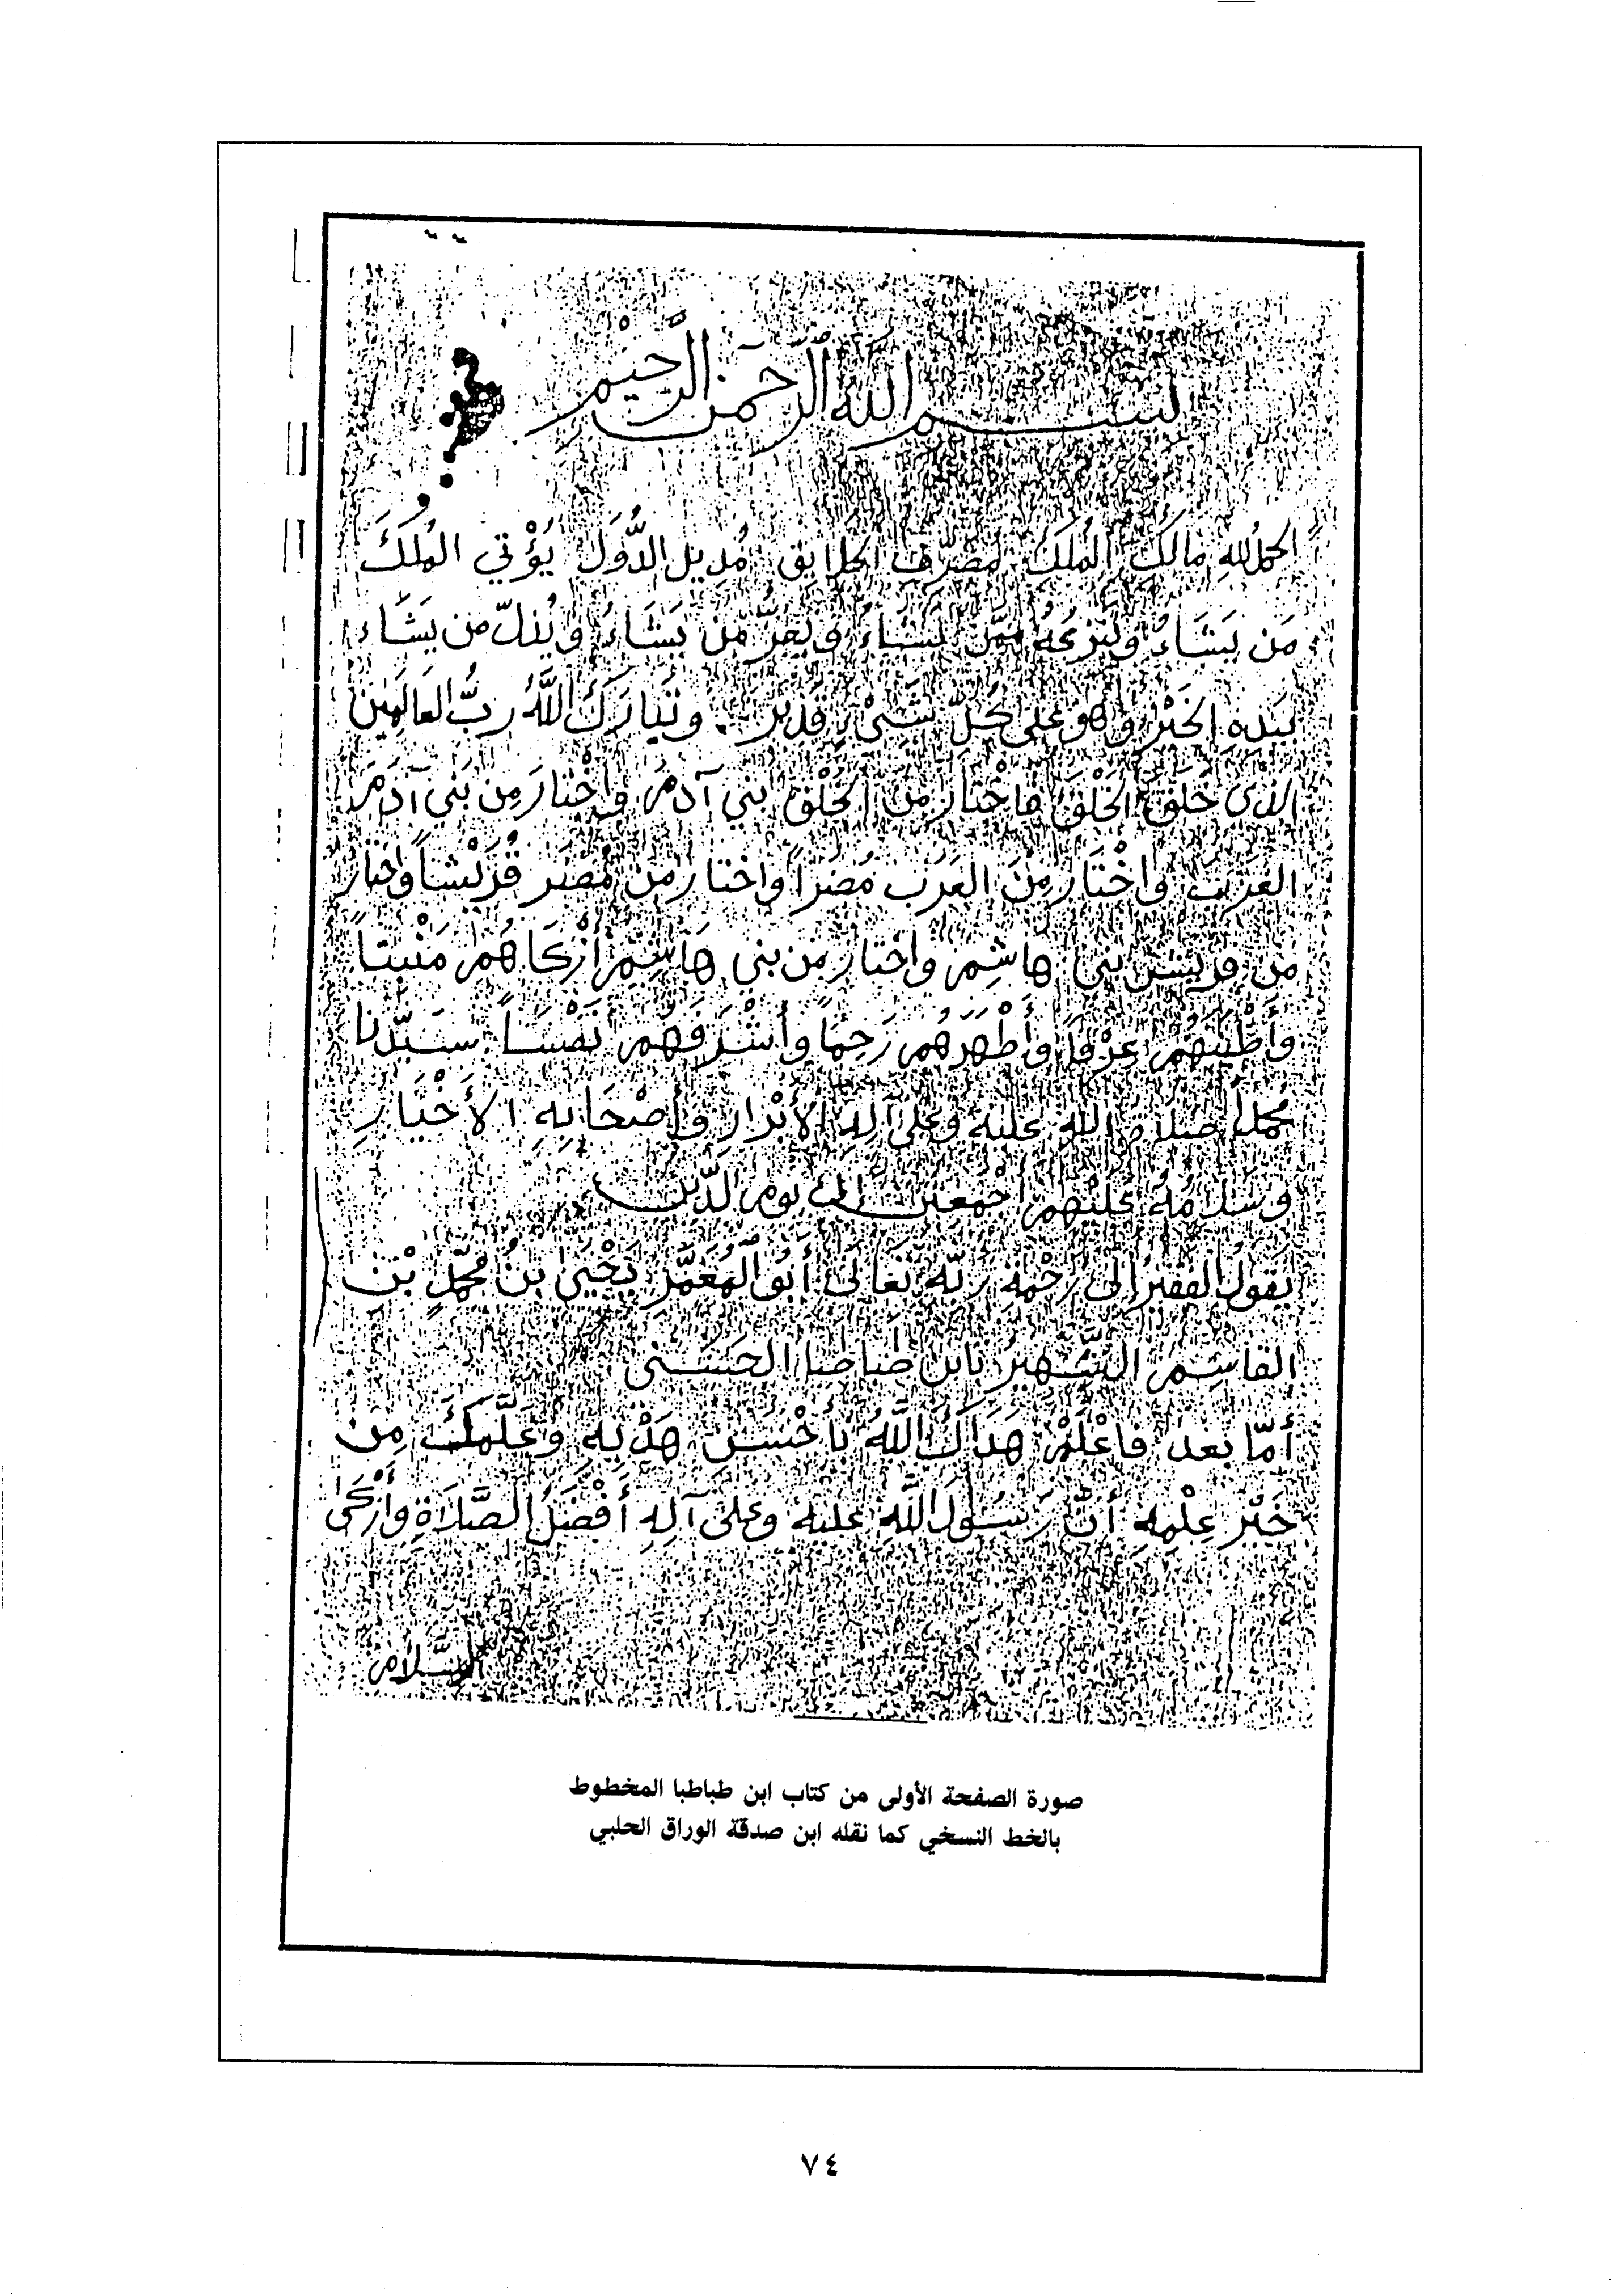 بسم الله الرحمن الرحيم
الحمد لله مالك الملك مصرف الخلايق مُديل الدُّوَل يُؤتي المُلكَ
مَن يَشَاءُ ويَنزعُهُ ممَّن يَشاءُ ويعزُّ مَن يَشَاءُ ويُذلّ من يَشَاء
بيَده الخَيْرُ وهو على كُلّ شَيْءٍ قَدير . وتَبَارَكَ اللَّهُ ربُّ العَالَمين
الذي خَلَقَ الخَلْقَ فاخْتَارَ مِنَ الخَلْقِ بَني آدَمَ واخْتَارَ مِن بَني آدَمَ
العَرَبَ واخْتَار مِنَ العَرَب مُضَراً واخْتار مِن مُضَر قُرَيْشاً واختار
من قريش بني هاشِم واختار من بني هَاشِم أَزْكَاهُم مَنْبَتاً
وأَطْيَبَهُم عِرْقاً وأَطْهَرَهُم رَحِمًا وأَشْرَفَهم نَفْسًا سَيّدنا
محمد صلاة الله عليه وعلى آله الأَبْرَار وأَصْحَابِهِ الأَخْيَارِ
وسَلامُهُ عَلَيْهم أجمعين إلى يوم الدّين
يَقولُ الفَقيرُ إلى رَحْمَةِ رَبّه تَعَالَى أَبُو المُعَمَّر يَحْيَى بنُ مُحَمَّد بْن
القاسِم الشَّهيرُ بابن طباطبا الحَسَني
أَمّا بعد فاعْلَمْ هَدَاكَ اللَّهُ بأَحْسَن هَدْيِهِ وعَلَّمكَ مِن
خَيْر عِلْمِهِ أَنَّ رَسُولَ اللَّهِ عليه وعلى آلِهِ أَفْضَلُ الصَّلاَةِ وأَزْكى
السَّلام
صورة الصفحة الأولى من كتاب ابن طباطبا المخطوط
بالخط النسخي كما نقله ابن صدقة الوراق الحلبي
٧٤